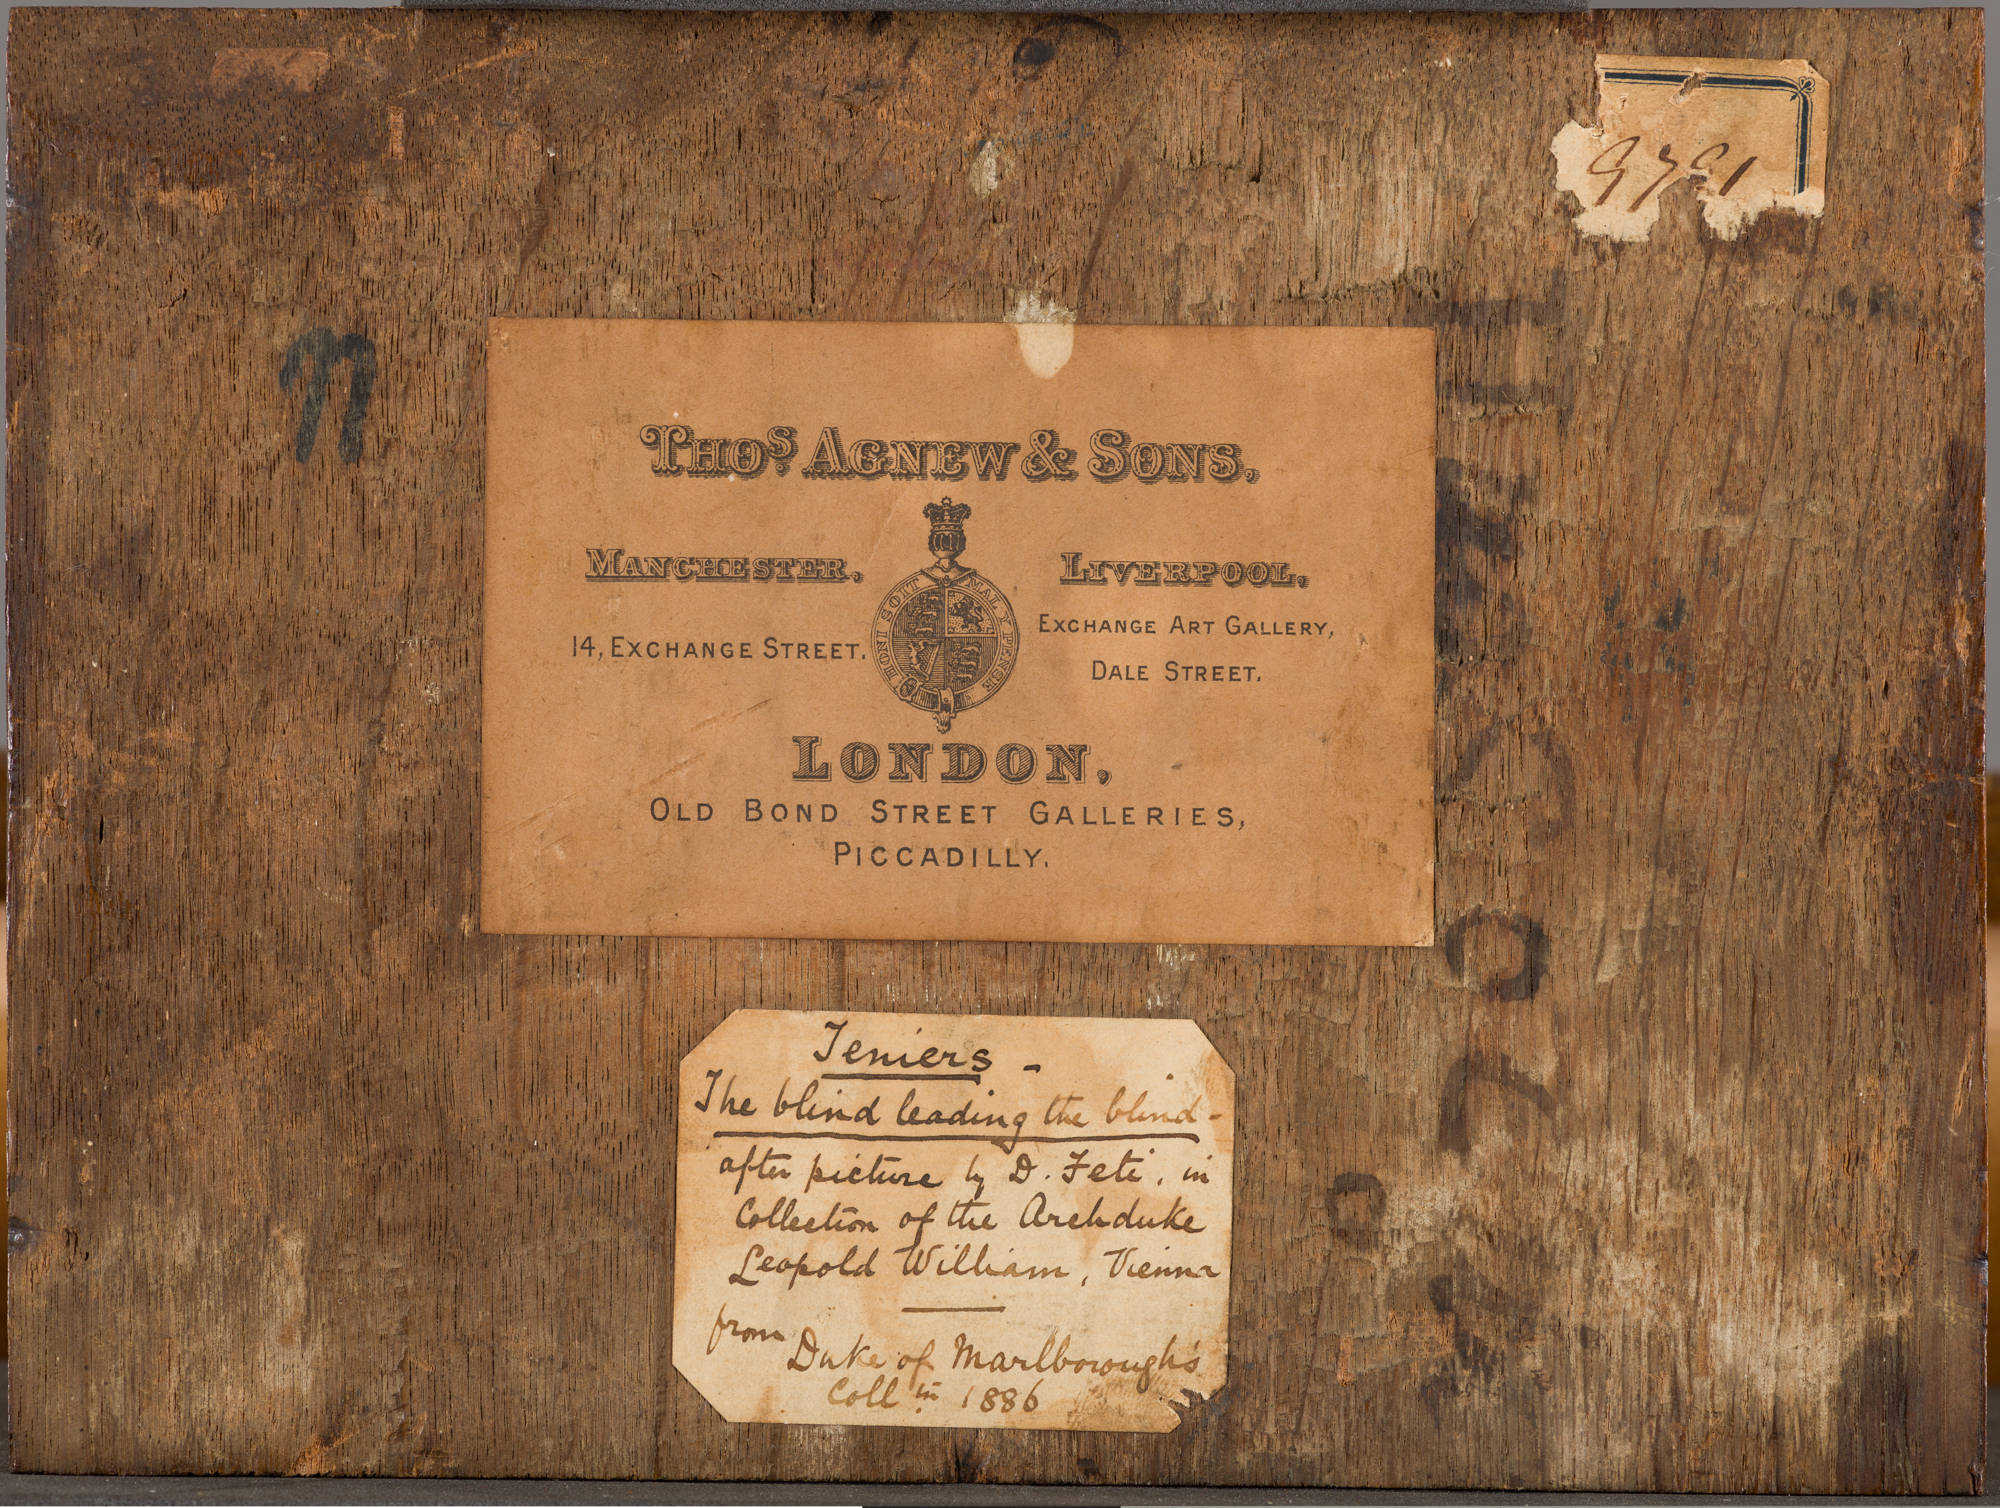 9791
n
THOS. AGNEW & SONS,
MANCHESTER,
14, EXCHANGE STREET.
HONI SOIT MAL Y PENSE
LIVERPOOL,
EXCHANGE ART GALLERY,
DALE STREET.
LONDON,
OLD BOND STREET GALLERIES,
PICCADILLY.
Teniers -
The blind leading the blind -
after picture by D. Feti, in
Collection of the Archduke
Leopold William, Vienna
from Duke of Marlborough's
Coll in 1886